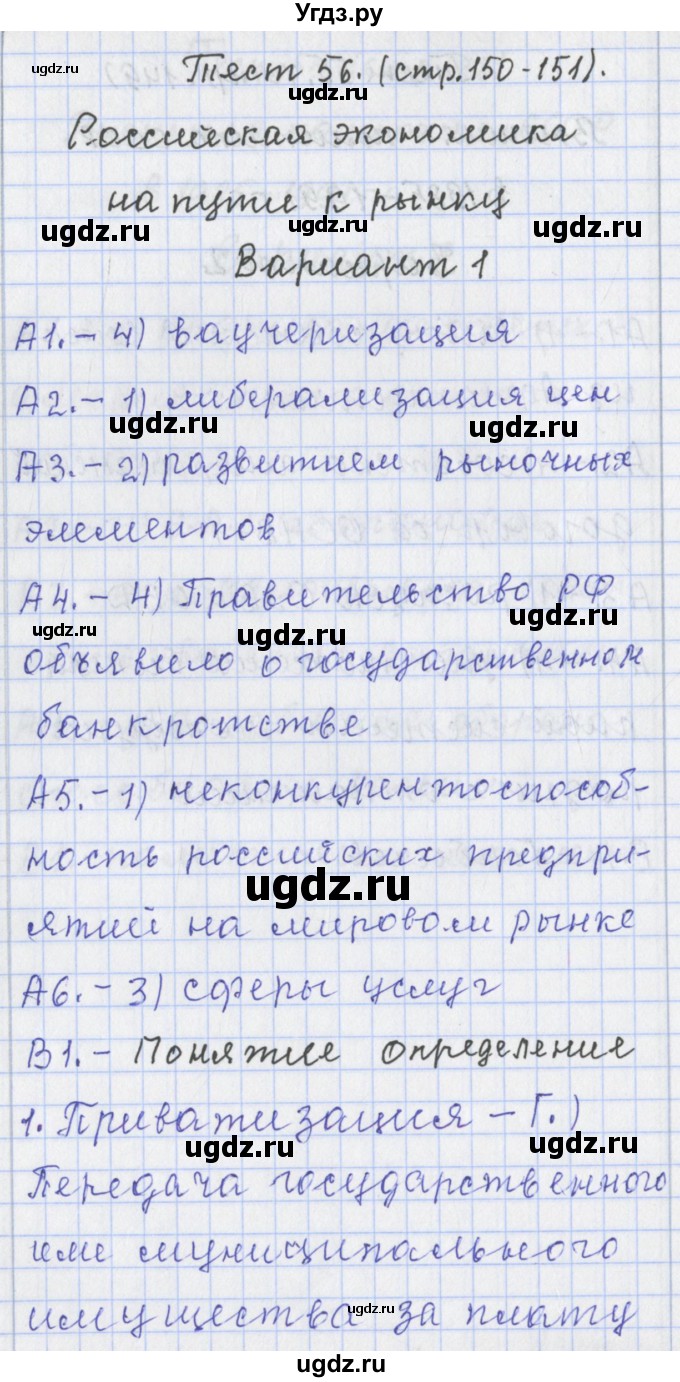 Угдз.ру
Тест 56. (стр.150-151).
Российская экономика
на пути к рынку
Вариант 1
А1.- 4) ваучеризация
А2.- 1) либерализация цен
А3.- 2) развитием рыночных
элементов
А4.- 4) Правительство РФ
объявило о государственном
банкротстве
А5.- 1) неконкурентоспособ-
ность российских предпри-
ятий на мировом рынке
А6.- 3) сферы услуг
В1.- Понятие определения
1. Приватизация - Г.)
Передача государственного
или муниципального
имущества за плату
ugdz.ru